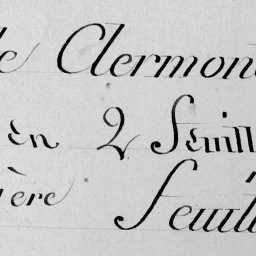 de Clermont
en 2 Feuill
ière Feuill